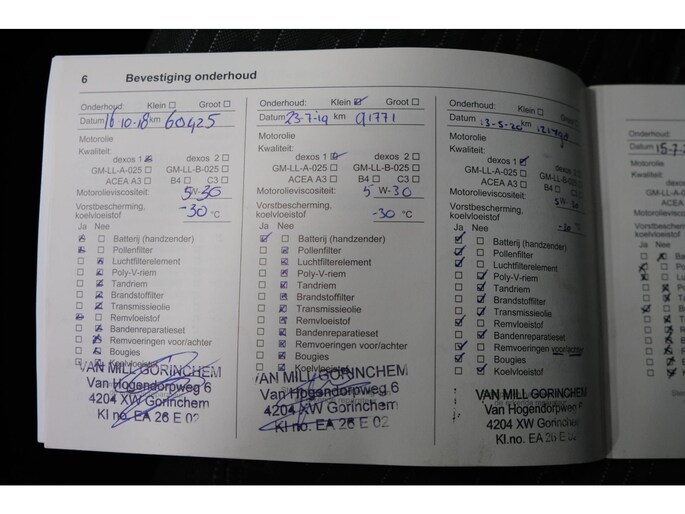 6 Bevestiging onderhoud
Onderhoud: Klein Groot
Datum 16-10-18 km 60425
Motorolie
Kwaliteit:
dexos 1 dexos 2
GM-LL-A-025 GM-LL-B-025
ACEA A3 B4 C3
Motorolieviscositeit: 5W-30
Vorstbescherming,
koelvloeistof -30 °C
Ja Nee
Batterij (handzender)
Pollenfilter
Luchtfilterelement
Poly-V-riem
Tandriem
Brandstoffilter
Transmissieolie
Remvloeistof
Bandenreparatieset
Remvoeringen voor/achter
Bougies
Koelvloeistof
VAN MILL GORINCHEM
Van Hogendorpweg 6
4204 XW Gorinchem
KI no. EA 26 E 02
Onderhoud: Klein Groot
Datum 23-7-19 km 91771
Motorolie
Kwaliteit:
dexos 1 dexos 2
GM-LL-A-025 GM-LL-B-025
ACEA A3 B4 C3
Motorolieviscositeit: 5W-30
Vorstbescherming,
koelvloeistof -30 °C
Ja Nee
Batterij (handzender)
Pollenfilter
Luchtfilterelement
Poly-V-riem
Tandriem
Brandstoffilter
Transmissieolie
Remvloeistof
Bandenreparatieset
Remvoeringen voor/achter
Bougies
Koelvloeistof
VAN MILL GORINCHEM
Van Hogendorpweg 6
4204 XW Gorinchem
KI no. EA 26 E 02
Onderhoud: Klein Groot
Datum 13-5-20 km
Motorolie
Kwaliteit:
dexos 1 dexos 2
GM-LL-A-025 GM-LL-B-025
ACEA A3 B4 C3
Motorolieviscositeit: 5W-30
Vorstbescherming,
koelvloeistof -30 °C
Ja Nee
Batterij (handzender)
Pollenfilter
Luchtfilterelement
Poly-V-riem
Tandriem
Brandstoffilter
Transmissieolie
Remvloeistof
Bandenreparatieset
Remvoeringen voor/achter
Bougies
Koelvloeistof
VAN MILL GORINCHEM
Van Hogendorpweg
4204 XW Gorinchem
KI.no. EA 26 E
Onderhoud:
Datum 15-7-2
Motorolie
Kwaliteit:
GM-LL-A
ACEA
Motorolieviscos
Vorstbescherm
koelvloeistof
Ja Nee